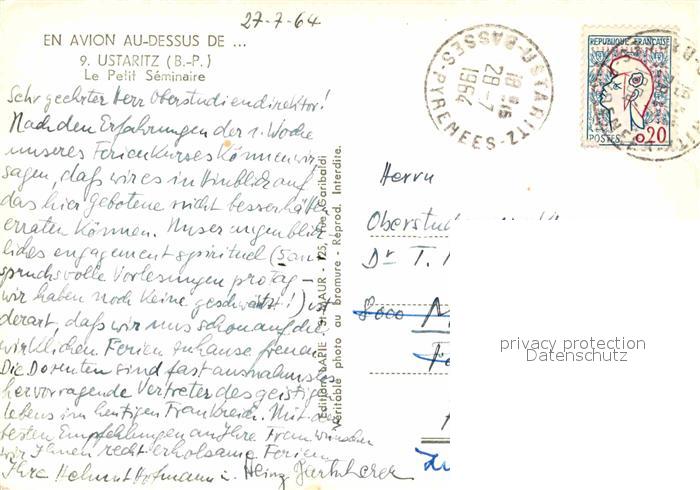 27-7-64
EN AVION AU-DESSUS DE ...
9. USTARITZ (B.-P.)
Le Petit Séminaire
Sehr geehrter Herr Oberstudiendirektor!
Nach den Erfahrungen der 1. Woche
unseres Ferienkurses können wir
sagen, daß wir es im Hinblick auf
das hier Gebotene nicht besser hätten
erraten können. Unser augenblick-
liches engagement spirituel (5 an-
spruchsvolle Vorlesungen pro Tag –
wir haben noch keine geschwänzt!) ist
derart, daß wir uns schon auf die
wirklichen Ferien zuhause freuen.
Die Dozenten sind fast ausnahmslos
hervorragende Vertreter des geistigen
Lebens im heutigen Frankreich. Mit den
besten Empfehlungen an Ihre Frau wünschen
wir Ihnen recht erholsame Ferien
Ihre Helmut Hofmann u. Heinz
Edition LAPIE - St-MAUR - 125, rue Garibaldi
Véritable photo au bromure - Reprod. Interdite.
USTARITZ
BASSES-PYRENEES
18 H 15
28-7
1964
REPUBLIQUE FRANÇAISE
POSTES
0,20
Herrn
Dr T.
8000
privacy protection
Datenschutz